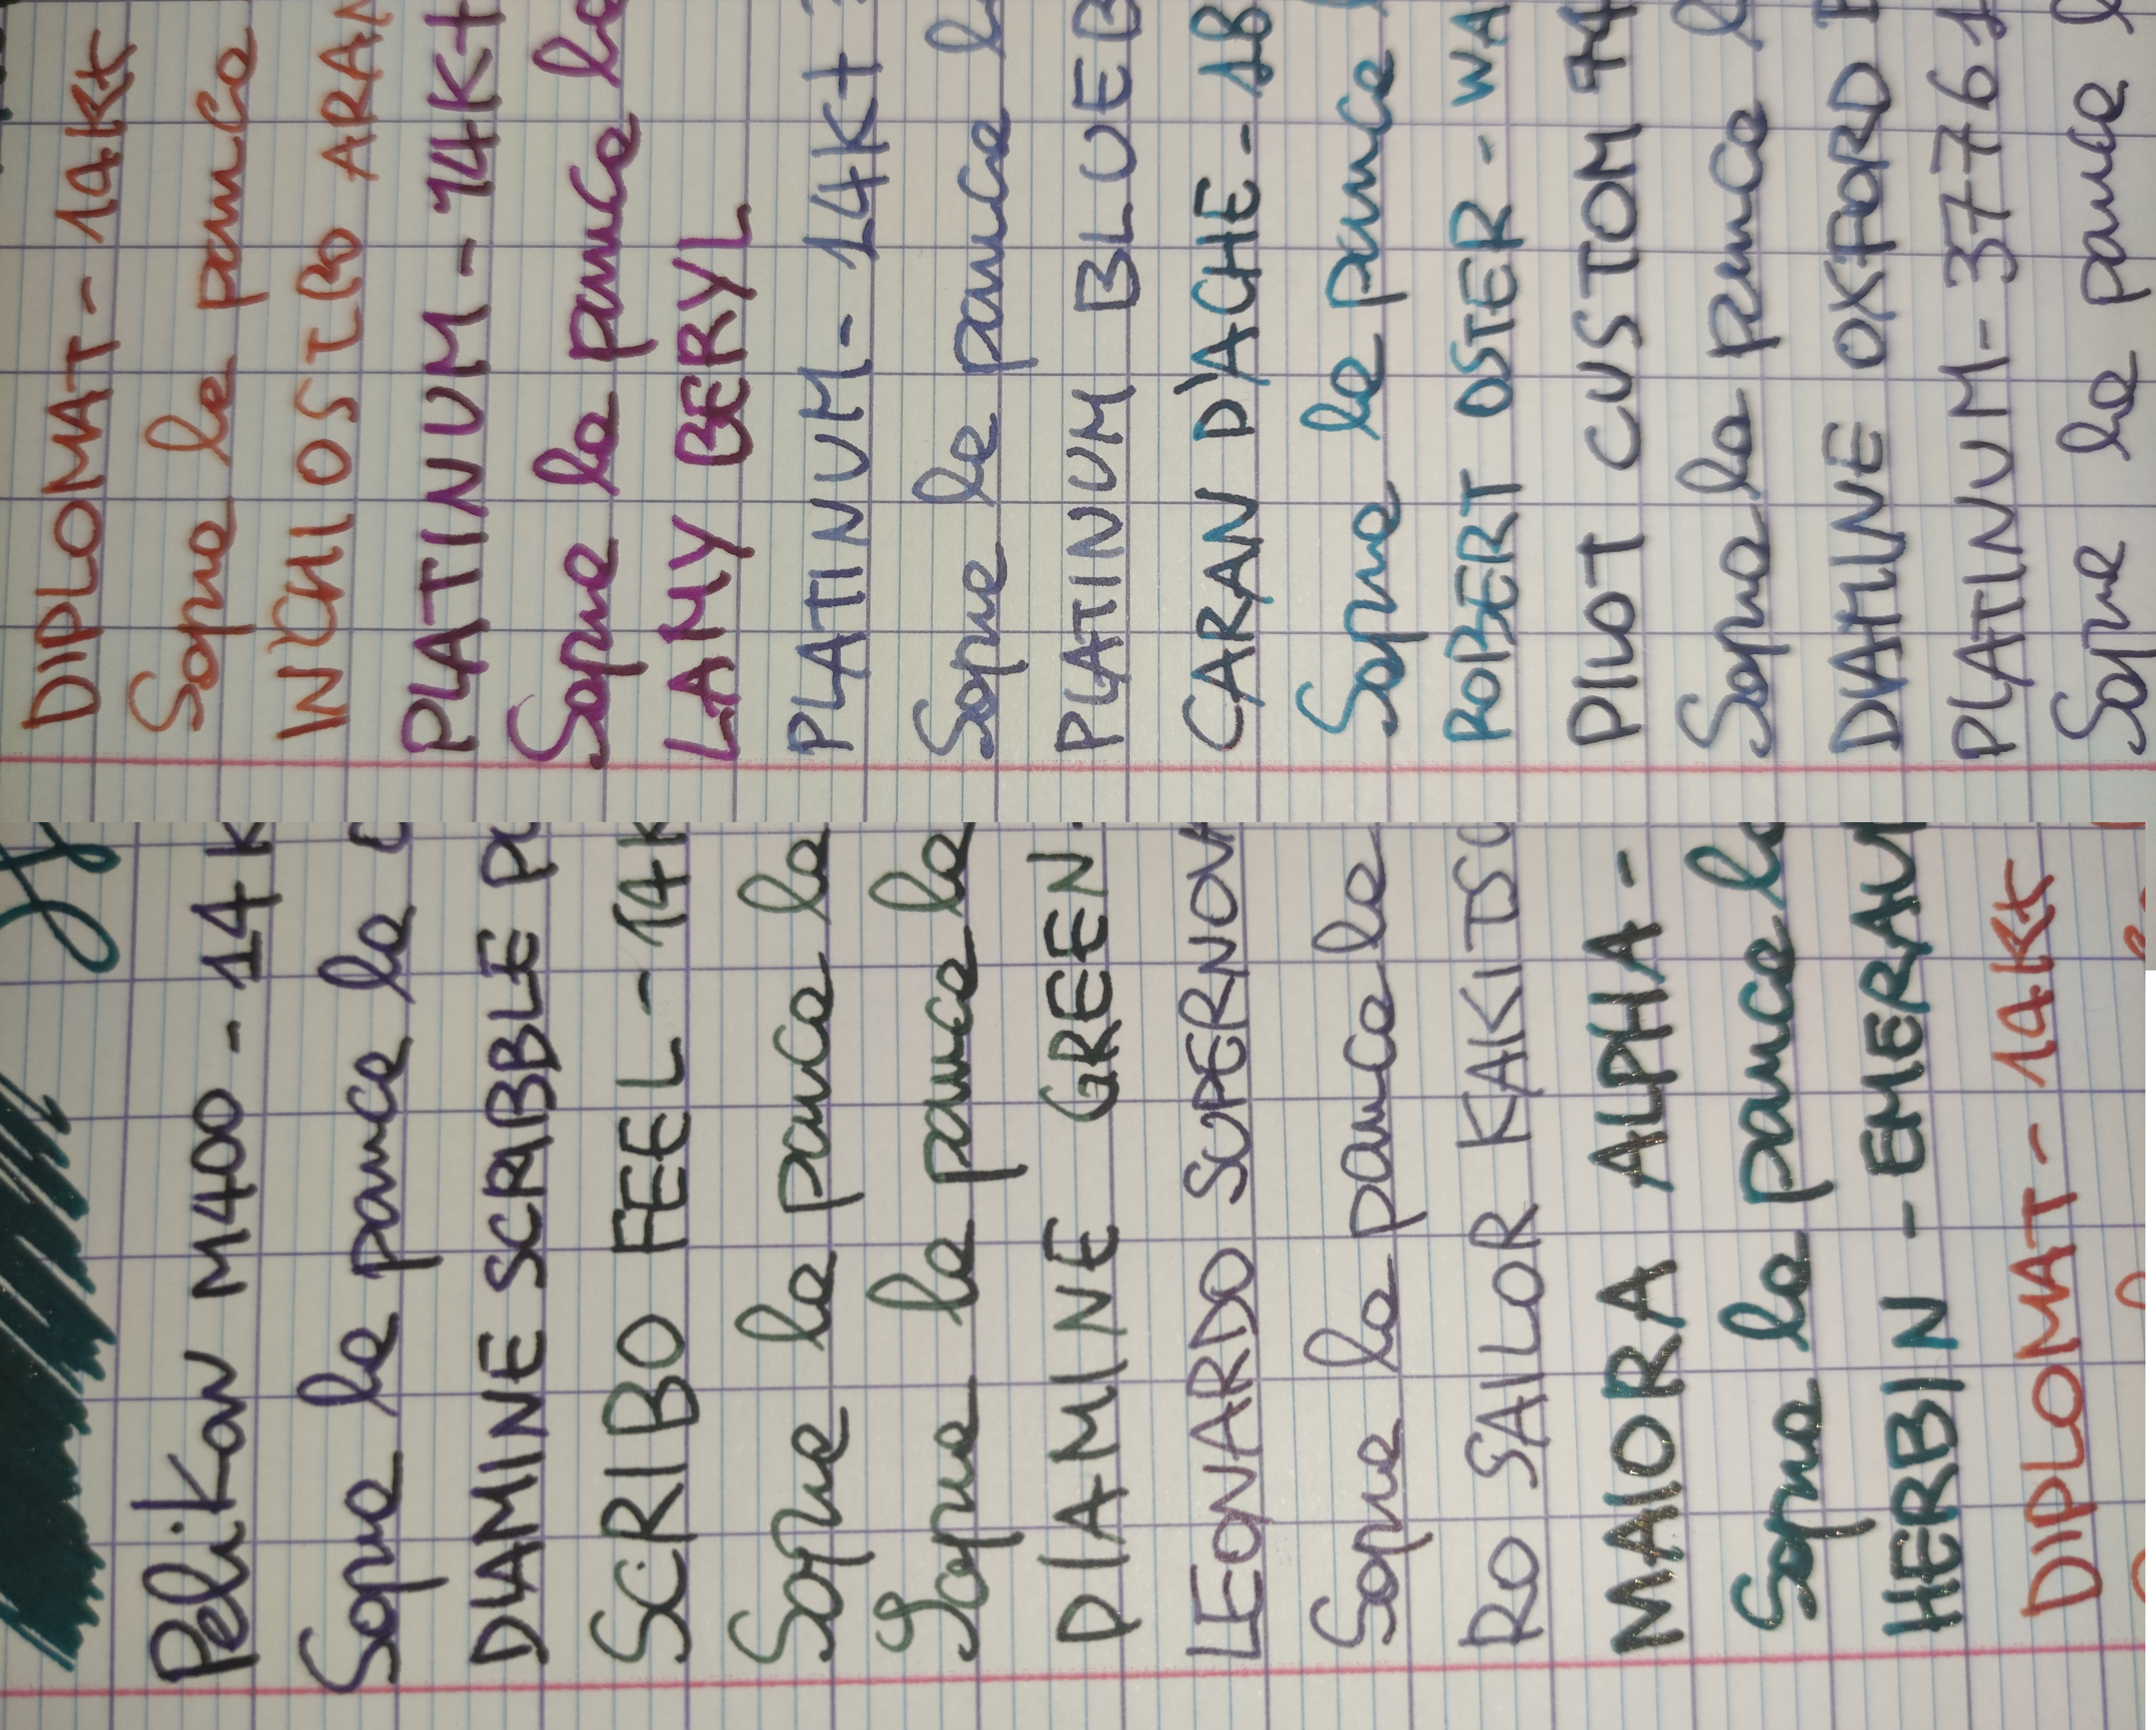 Pelikan M400 - 14K
Sopra la panca la c
DIAMINE SCRABBLE PU
SCRIBO FEEL - 14K
Sopra la panca la
Sopra la panca la
DIAMINE GREEN
LEONARDO SUPERNOVA
Sopra la panca la
RO SAILOR KAKITSU
MAIORA ALPHA -
Sopra la panca la
HERBIN - EMERAU
DIPLOMAT - 14Kt
DIPLOMAT - 14Kt
Sopra la panca
INCHIOSTRO ARAN
PLATINUM - 14Kt
Sopra la panca la
LAMY BERYL
PLATINUM - 14Kt
Sopra la panca la
PLATINUM BLUEB
CARAN D'ACHE - 18
Sopra la panca l
ROBERT OSTER - WA
PILOT CUSTOM 74
Sopra la panca l
DIAMINE OXFORD B
PLATINUM - 3776 1
Sopra la panca l